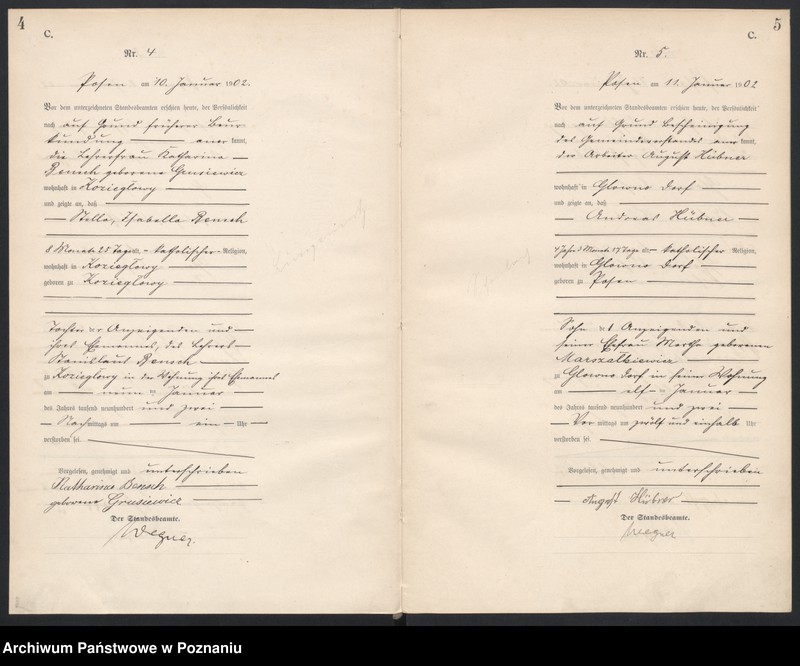 4
C.
Nr. 4
Posen am 10. Januar 1902.
Vor dem unterzeichneten Standesbeamten erschien heute, der Persönlichkeit
nach auf Grund früherer Beur-
kundung anerkannt,
die Lehrerfrau Katharina
Bensch geborene Grusiewicz
wohnhaft in Koziegłowy
und zeigte an, daß
Stella, Isabella Bensch
8 Monate 25 Tage alt, katholischer Religion,
wohnhaft in Koziegłowy
geboren zu Koziegłowy
Tochter der Anzeigenden und
ihres Ehemannes, des Lehrers
Stanislaus Bensch
zu Koziegłowy in der Wohnung ihres Ehemannes
am neun ten Januar
des Jahres tausend neunhundert und zwei
Nachmittags um ein Uhr
verstorben sei.
Vorgelesen, genehmigt und unterschrieben
Katharina Bensch
geborene Grusiewicz
Der Standesbeamte.
Wegner.
5
C.
Nr. 5.
Posen am 11. Januar 1902
Vor dem unterzeichneten Standesbeamten erschien heute, der Persönlichkeit
nach auf Grund Bescheinigung
des Gemeindevorstandes anerkannt,
der Arbeiter August Hübner
wohnhaft in Glowno Dorf
und zeigte an, daß
Andreas Hübner
Monate 17 Tage alt, katholischer Religion,
wohnhaft in Glowno Dorf
geboren zu Posen
Sohn des Anzeigenden und
seiner Ehefrau Martha geborenen
Marszałkiewicz
zu Glowno Dorf in seiner Wohnung
am elf ten Januar
des Jahres tausend neunhundert und zwei
Vormittags um zwölf und einhalb Uhr
verstorben sei.
Vorgelesen, genehmigt und unterschrieben
August Hübner
Der Standesbeamte.
Wegner
Archiwum Państwowe w Poznaniu